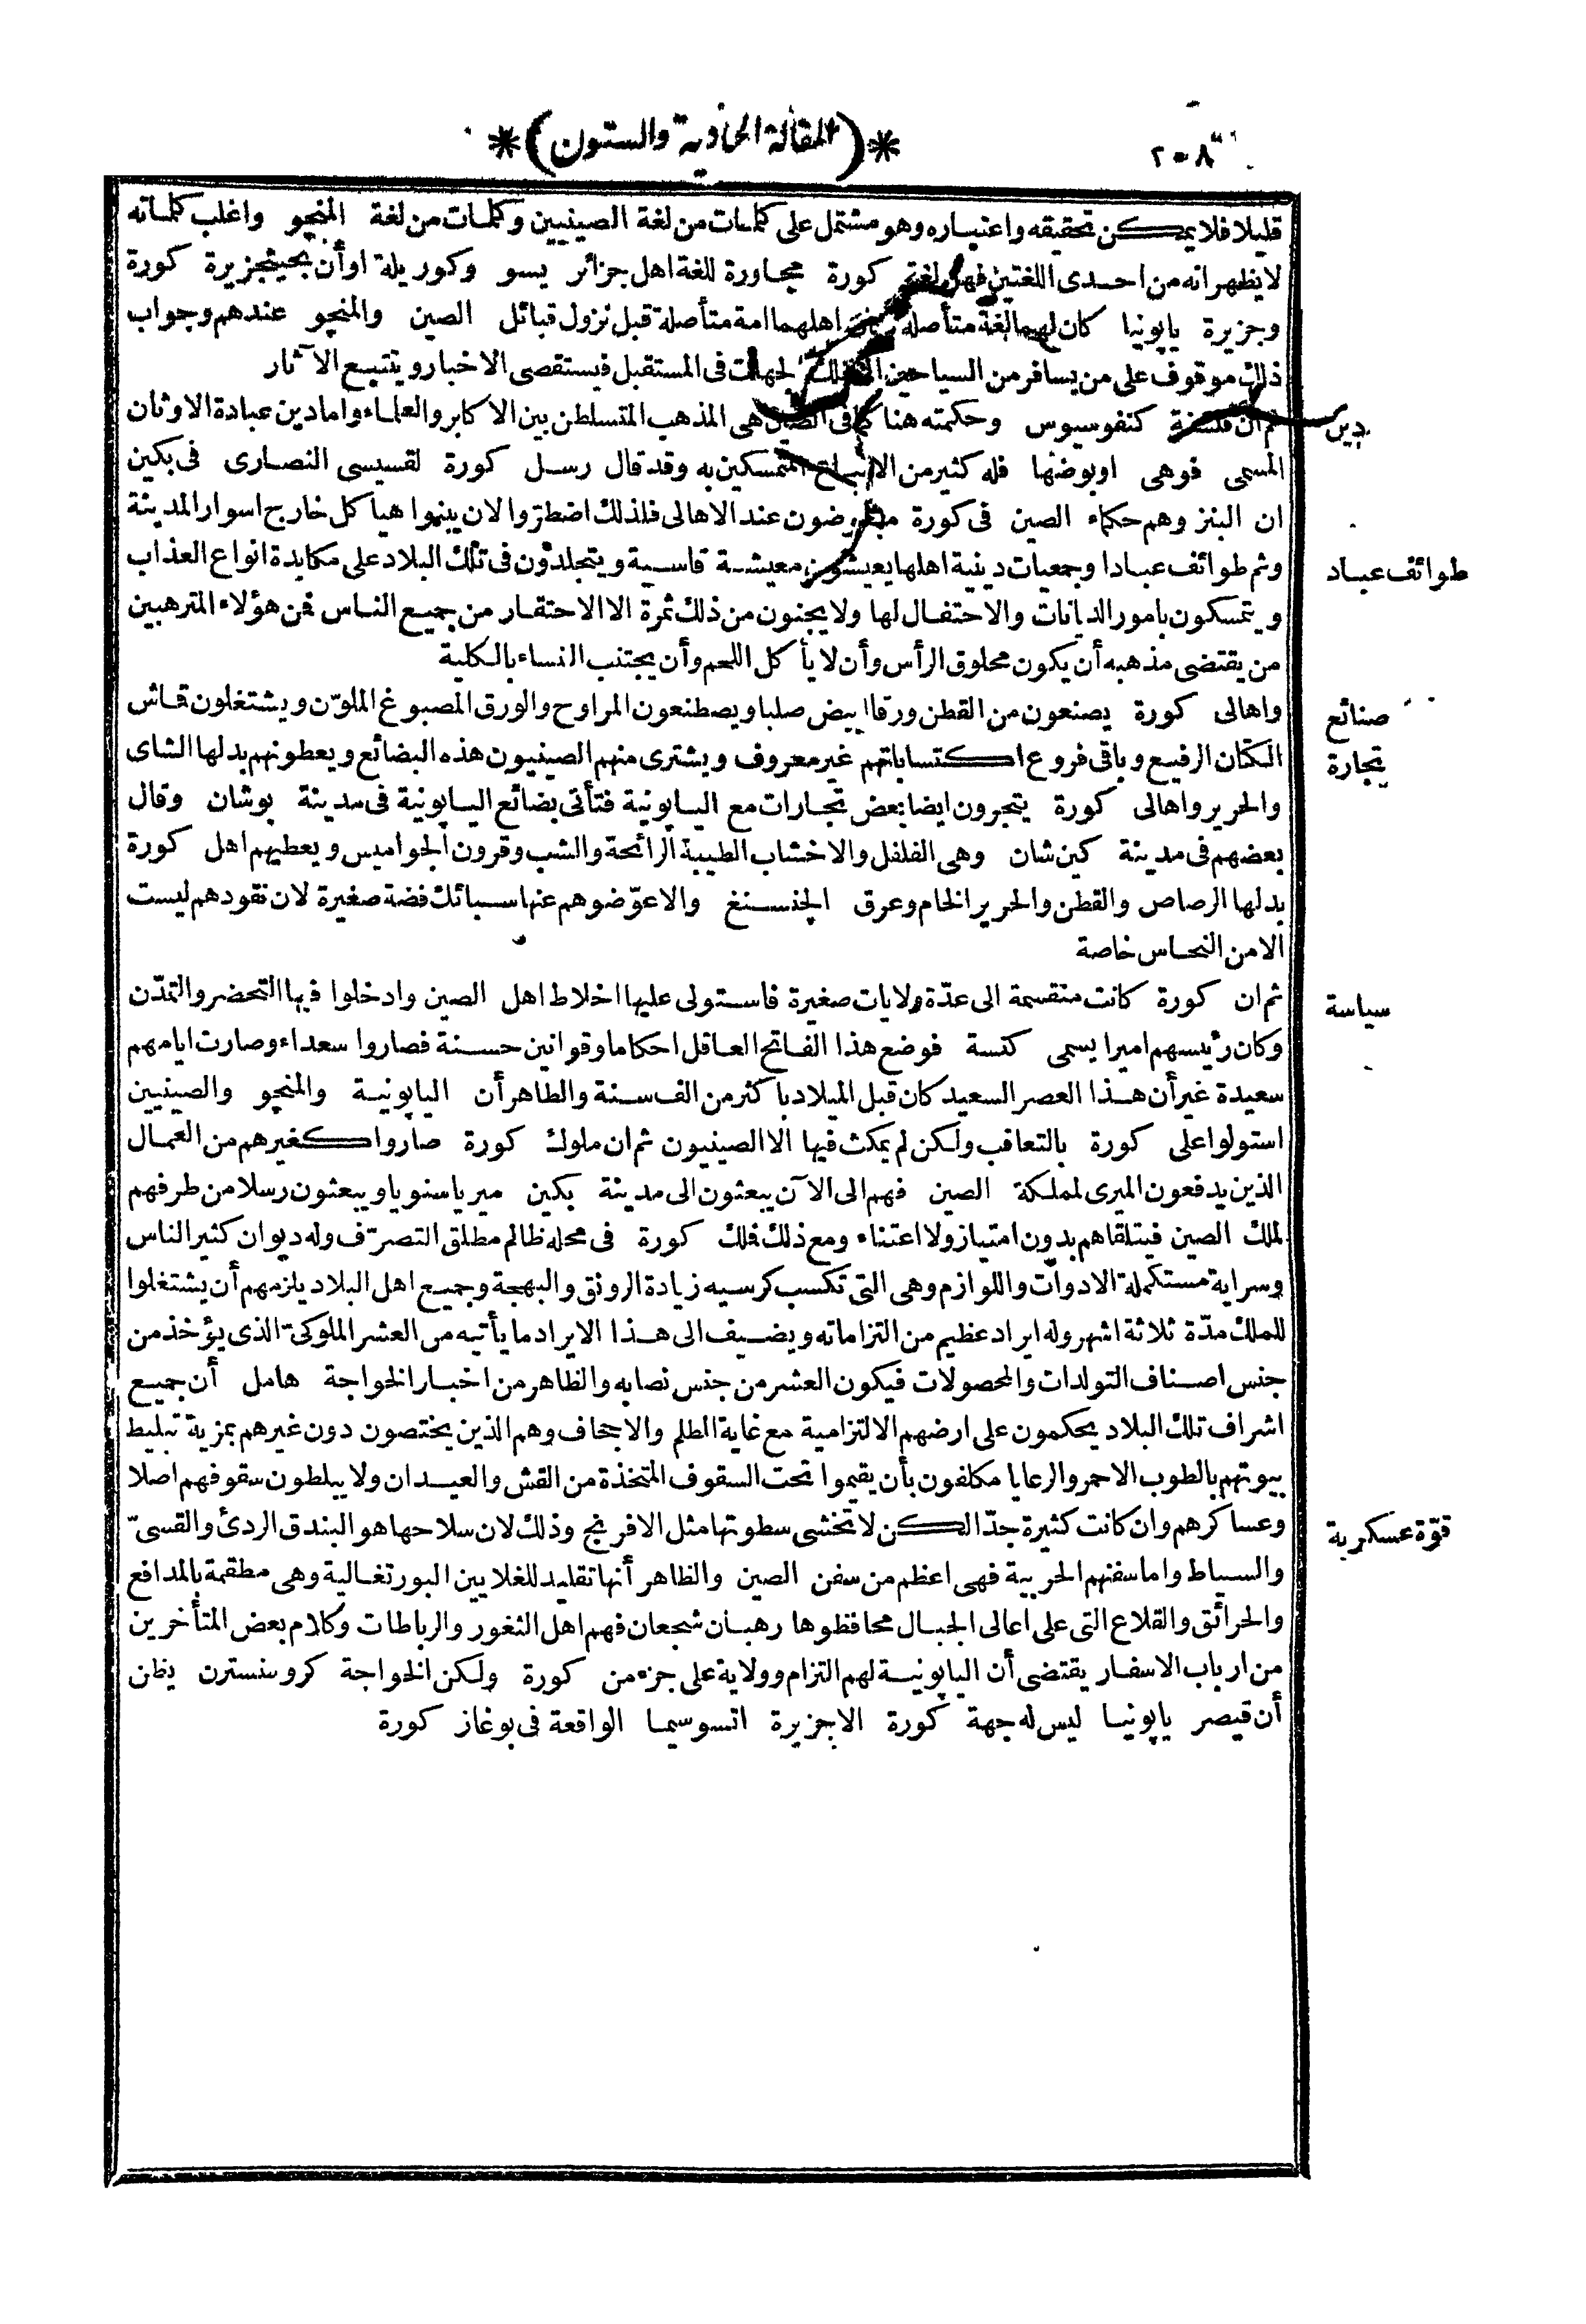 ٢٠٨
*(المقالة الحادية والستون)*
قليلا فلا يمكن تحقيقه واعتباره وهو مشتمل على كلمات من لغة الصينيين وكلمات من لغة المنجو واغلب كلماته
لا يظهر انه من احدى اللغتين فهل لغة كورة مجاورة للغة اهل جزائر يسو وكوريلة او أن بحيث جزيرة كورة
وجزيرة ياپونيا كان لهما لغة متأصلة اهلهما امة متأصلة قبل نزول قبائل الصين والمنجو عندهم وجواب
ذلك موقوف على من يسافر من السياحين لجهات فى المستقبل فيستقصى الاخبار ويتتبع الآثار
دين
ثم ان فلسفة كنفوسيوس وحكمته هنا كما فى الصين هى المذهب المتسلطن بين الاكابر والعلماء واما دين عبادة الاوثان
المسمى فوهى او بوضها فله كثير من الاتباع المتمسكين به وقد قال رسل كورة لقسيسى النصارى فى بكين
ان البنز وهم حكماء الصين فى كورة مبغوضون عند الاهالى فلذلك اضطروا لان يبنوا هياكل خارج اسوار المدينة
طوائف عباد
وثم طوائف عبادا وجمعيات دينية اهلها يعيشون معيشة قاسية ويتجلدون فى تلك البلاد على مكابدة انواع العذاب
ويتمسكون بامور الديانات والاحتفال لها ولا يجنون من ذلك ثمرة الا الاحتقار من جميع الناس فمن هؤلاء المترهبين
من يقتضى مذهبه أن يكون محلوق الرأس وأن لا يأكل اللحم وأن يجتنب النساء بالكلية
صنائع
واهالى كورة يصنعون من القطن ورقا ابيض صلبا ويصطنعون المراوح والورق المصبوغ الملوّن ويشتغلون قماش
تجارة
الكتان الرفيع وباقى فروع اكتساباتهم غير معروف ويشترى منهم الصينيون هذه البضائع ويعطونهم بدلها الشاى
والحرير واهالى كورة يتجرون ايضا بعض تجارات مع الياپونية فتأتى بضائع الياپونية فى مدينة بوشان وقال
بعضهم فى مدينة كين شان وهى الفلفل والاخشاب الطيبة الرائحة والشب وقرون الجواميس ويعطيهم اهل كورة
بدلها الرصاص والقطن والحرير الخام وعرق الجنسنغ والا عوّضوهم عنها سبائك فضة صغيرة لان نقودهم ليست
الا من النحاس خاصة
سياسة
ثم ان كورة كانت منقسمة الى عدّة ولايات صغيرة فاستولى عليها اخلاط اهل الصين وادخلوا فيها التحضر والتمدّن
وكان رئيسهم اميرا يسمى كتسة فوضع هذا الفاتح العاقل احكاما وقوانين حسنة فصاروا سعداء وصارت ايامهم
سعيدة غير أن هذا العصر السعيد كان قبل الميلاد باكثر من الف سنة والظاهر أن الياپونية والمنجو والصينيين
استولوا على كورة بالتعاقب ولكن لم يمكث فيها الا الصينيون ثم ان ملوك كورة صاروا كغيرهم من العمال
الذين يدفعون الميرى لمملكة الصين فهم الى الآن يبعثون الى مدينة بكين ميريا سنويا ويبعثون رسلا من طرفهم
لملك الصين فيتلقاهم بدون امتياز ولا اعتناء ومع ذلك فلك كورة فى محله ظالم مطلق التصرّف وله ديوان كثير الناس
وسراية مستكملة الادوات واللوازم وهى التى تكسب كرسيه زيادة الرونق والبهجة وجميع اهل البلاد يلزمهم أن يشتغلوا
للملك مدّة ثلاثة اشهر وله ايراد عظيم من التزاماته ويضيف الى هذا الايراد ما يأتيه من العشر الملوكىّ الذى يؤخذ من
جنس اصناف التولدات والمحصولات فيكون العشر من جنس نصابه والظاهر من اخبار الخواجة هامل أن جميع
اشراف تلك البلاد يحكمون على ارضهم الالتزامية مع غاية الظلم والاجحاف وهم الذين يختصون دون غيرهم بمزية تبليط
بيوتهم بالطوب الاحمر والرعايا مكلفون بأن يقيموا تحت السقوف المتخذة من القش والعيدان ولا يبلطون سقوفهم اصلا
قوّة عسكرية
وعساكرهم وان كانت كثيرة جدّا لكن لا تخشى سطوتها مثل الافرنج وذلك لان سلاحها هو البندق الردئ والقسىّ
والسياط واما سفنهم الحربية فهى اعظم من سفن الصين والظاهر أنها تقليد للغلايين البورتغالية وهى مطقمة بالمدافع
والحرائق والقلاع التى على اعالى الجبال محافظوها رهبان شجعان فهم اهل الثغور والرباطات وكلام بعض المتأخرين
من ارباب الاسفار يقتضى أن الياپونية لهم التزام وولاية على جزء من كورة ولكن الخواجة كروسنسترن يظن
أن قيصر ياپونيا ليس له جهة كورة الا جزيرة اتسوسيما الواقعة فى بوغاز كورة